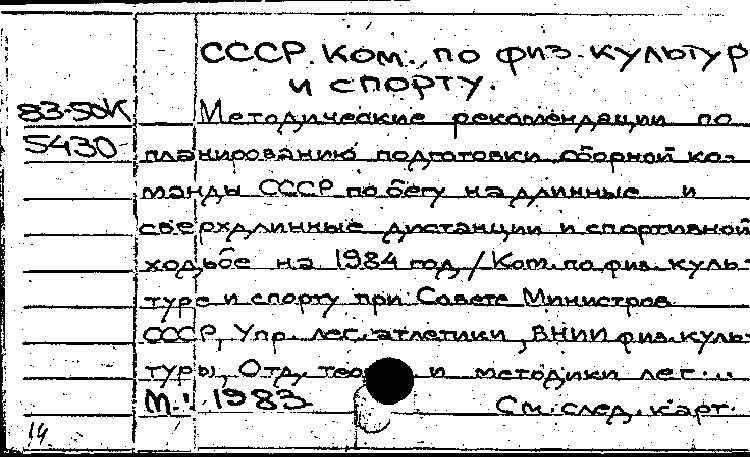 СССР. Ком. по физ. культур
и спорту.
83-50К
Методические рекомендации по
5430
планированию подготовки сборной ко-
манды СССР по бегу на длинные и
сверхдлинные дистанции и спортивной
ходьбе на 1984 год / Ком. по физ. куль-
туре и спорту при Совете Министров
СССР, Упр. лег. атлетики, ВНИИ физ. куль-
туры, Отд. и методики лег.
М.: 1983
См. след. карт.
14